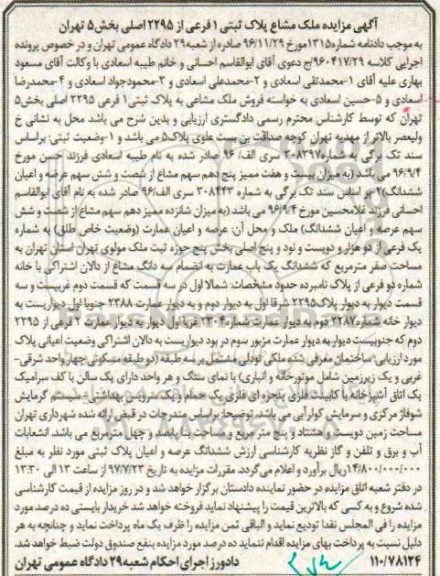 آگهی مزایده ملک مشاع پلاک ثبتی ۱ فرعی از ۲۲۹۵ اصلی بخش۵ تهران
به موجب دادنامه شماره۱۳۱۵مورخ ۹۶/۱۱/۲۹ صادره از شعبه۲۹ دادگاه عمومی تهران و در خصوص پرونده
اجرایی کلاسه ۹۶۰۴۱۷/۲۹/ج دعوی آقای ابوالقاسم احسانی و خانم طیبه اسعادی با وکالت آقای مسعود
بهاری علیه آقای ۱-محمدتقی اسعادی و ۲-محمدعلی اسعادی و ۳-محمودجواد اسعادی و ۴-محمدرضا
اسعادی و ۵-حسین اسعادی به خواسته فروش ملک مشاعی به پلاک ثبتی۱ فرعی ۲۲۹۵ اصلی بخش۵
تهران که توسط کارشناس محترم رسمی دادگستری ارزیابی و بدین شرح می باشد محل به نشانی خ
ولیعصر بالاتر از مهدیه تهران کوچه صداقت بن بست علوی پلاک۵ می باشد و ۱-وضعیت ثبتی: براساس
سند تک برگی به شماره۳۰۸۳۹۷ سری الف/ ۹۶ صادر شده به نام طیبه اسعادی فرزند حسن مورخ
۹۶/۹/۴ می باشد (به میزان بیست و هفت ممیز پنج دهم سهم مشاع از شصت و شش سهم عرصه و اعیان
ششدانگ)۲-بر اساس سند تک برگی به شماره ۳۰۸۴۴۳ سری الف/۹۶ صادر شده به نام آقای ابوالقاسم
احسانی فرزند غلامحسین مورخ ۹۶/۹/۴ می باشد (به میزان شانزده ممیز دهم سهم مشاع از شصت و شش
سهم عرصه و اعیان ششدانگ) ملک و محل آن: عرصه و اعیان عمارت (وضعیت خاص طلق) به شماره
یک فرعی از دو هزار و دویست و نود و پنج اصلی بخش پنج حوزه ثبت ملک مولوی تهران استان تهران به
مساحت صفر مترمربع که ششدانگ یک باب عمارت به انضمام سه دانگ مشاع از دالان اشتراکی با خانه
شماره دو فرعی از پلاک نامبرده حدود مشخصات: شمالا اول در سه قسمت که قسمت دوم غربیست و سه
قسمت دیوار به دیوار پلاک۲۲۹۵ شرقا اول به دیوار دوم و به دیوار عمارت ۲۳۸۸ جنوبا اول دیواریست به
دیوار خانه شماره۲۲۸۷ دوم به دیوار عمارت شماره۲۳۰۴ غربا اول دیوار به دیوار عمارت ۲ فرعی از ۲۲۹۵
دوم که جنوبیست دیوار به دیوار عمارت مزبور سوم در بود دیواریست به دالان اشتراکی وضعیت اعیانی پلاک
مورد ارزیابی: ساختمان معرفی شده ملکی نودلی مشتمل بر سه طبقه (دو طبقه مسکونی چهار واحد شرقی-
غربی و یک زیرزمین شامل موتورخانه و انباری) با نمای سنگ و هر واحد دارای یک سالن با کف سرامیک
یک اتاق آشپزخانه با کابینت فلزی پنجره ای فلزی یک حمام و یک سرویس بهداشتی سیستم گرمایش
شوفاژ مرکزی و سرمایش کولر آبی می باشد. توضیحا: براساس مندرجات در قبض ارائه شده شهرداری تهران
مساحت زمین دویست و هشتاد و پنج متر مربع و مساحت بنا پانصد و چهل مترمربع می باشد. انشعابات
آب و برق و تلفن و گاز نظریه کارشناسی ارزش ششدانگ عرصه و اعیان پلاک ثبتی مورد نظر به مبلغ
ریال برآورد و اعلام می گردد. مقررات مزایده به تاریخ ۹۷/۷/۲۳ از ساعت ۱۳ الی ۱۳:۳۰
در دفتر شعبه اتاق مزایده در حضور نماینده دادستان برگزار خواهد شد و در روز مزایده از قیمت کارشناسی
شده شروع و به کسی که بالاترین قیمت را پیشنهاد نماید فروخته خواهد شد خریدار بایستی ده درصد مورد
مزایده را فی المجلس نقدا تودیع نماید و الباقی ثمن مزایده را ظرف یک ماه پرداخت نماید و چنانچه به هر
دلیل نسبت به پرداخت بهای مزایده اقدام ننماید ده درصد مورد مزایده بنفع صندوق دولت ضبط خواهد شد.
۱۱۰/۷۸۱۲۴ دادورز اجرای احکام شعبه۲۹ دادگاه عمومی تهران